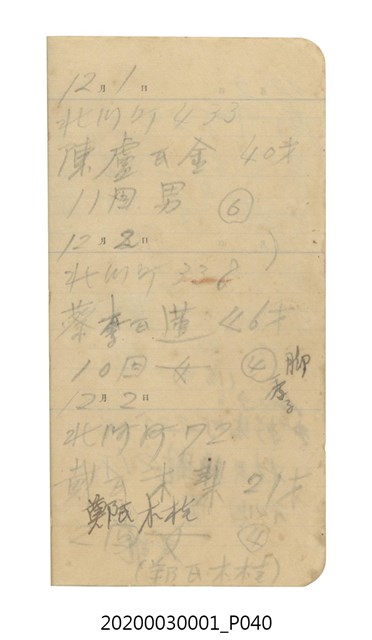 12月1日
北門町433
陳盧氏金 40才
11回男 ⑥
12月2日
北門町336
蔡李氏 46才
10回女 ④ 脚
12月2日
北門町72
戴氏米 21才
鄭氏木桂
2回女 ④
(鄭氏木桂)
20200030001_P040